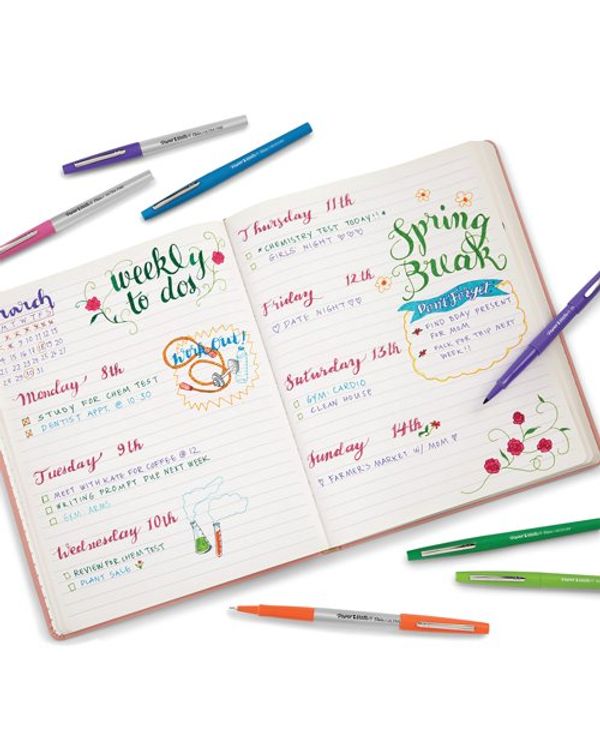 March
weekly
to dos
work out!
Monday 8th
STUDY FOR CHEM TEST
DENTIST APPT. @ 10:30
Tuesday 9th
MEET WITH KATE FOR COFFEE @ 12
WRITING PROMPT DUE NEXT WEEK
GYM: ARMS
Wednesday 10th
REVIEW FOR CHEM TEST
PLANT SALE
Thursday 11th
*CHEMISTRY TEST TODAY!!*
GIRLS NIGHT ♡♡♡
Friday 12th
♡ DATE NIGHT ♡ ♡
Saturday 13th
GYM: CARDIO
CLEAN HOUSE
Sunday 14th
♡ FARMER'S MARKET W/ MOM ♡
Spring
Break
Don't Forget
FIND BDAY PRESENT
FOR MOM
PACK FOR TRIP NEXT
WEEK!!
Paper Mate
Paper Mate
Paper Mate
Paper Mate
Paper Mate
Paper Mate